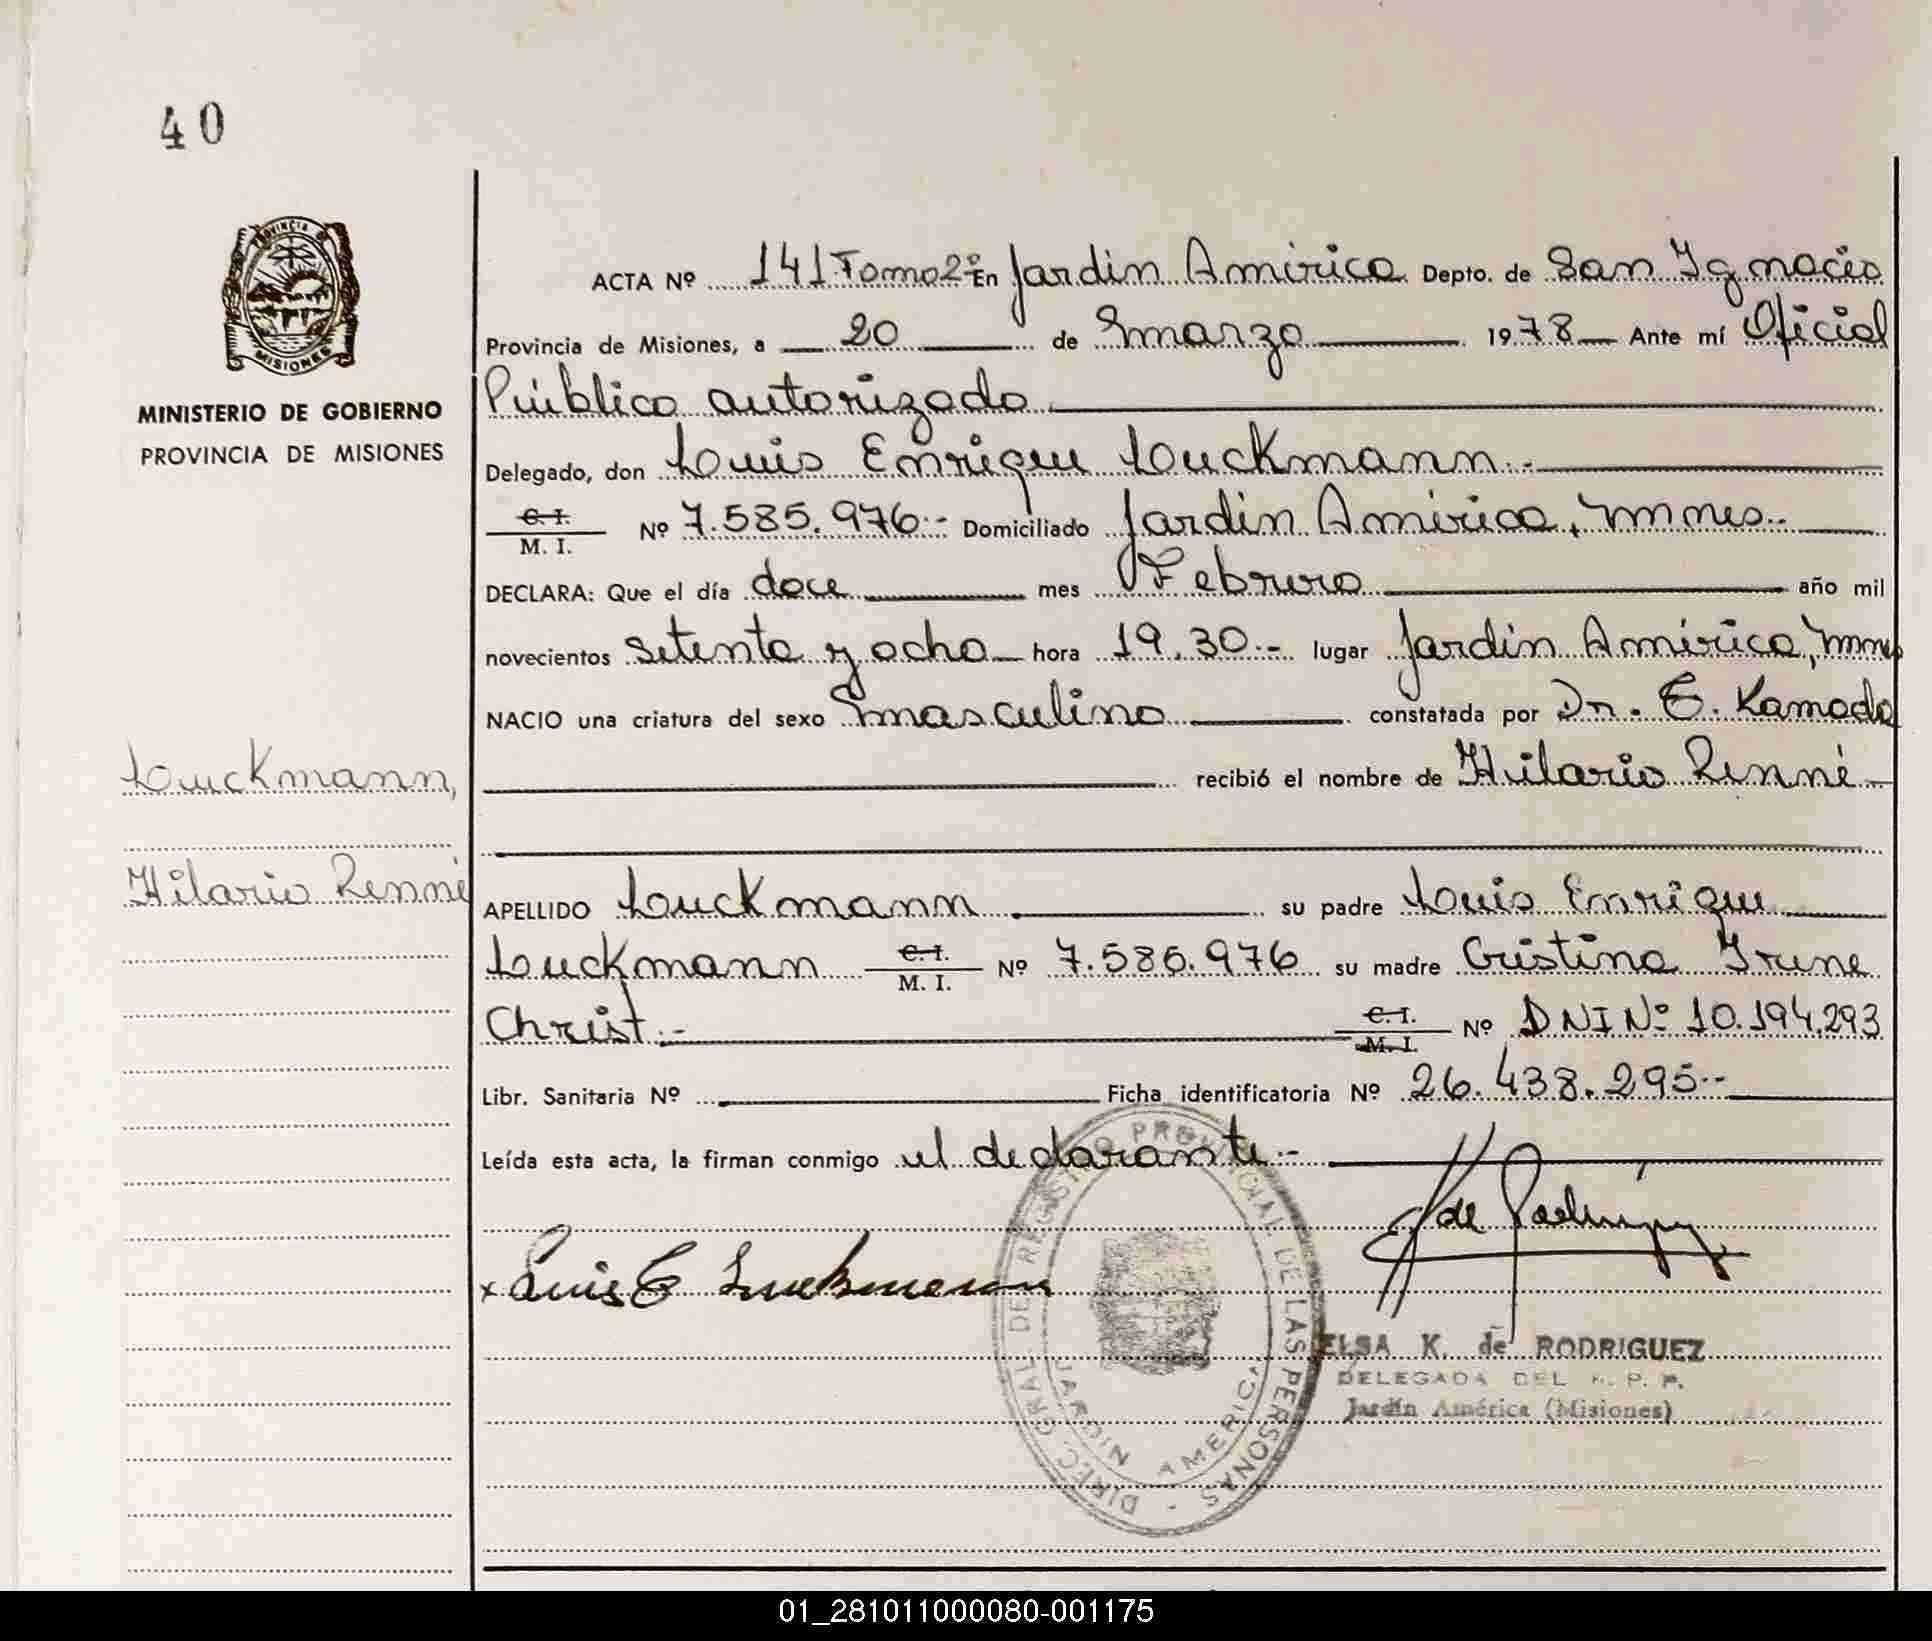 40
PROVINCIA DE
MISIONES
MINISTERIO DE GOBIERNO
PROVINCIA DE MISIONES
ACTA Nº 141 Tomo 2º En Jardín América Depto. de San Ignacio
Provincia de Misiones, a 20 de marzo 1978 Ante mí Oficial
Público autorizado
Delegado, don Luis Enrique Luckmann.-
C. I.
M. I. Nº 7.585.976.- Domiciliado Jardín América, Mnes.-
DECLARA: Que el día doce mes Febrero año mil
novecientos setenta y ocho hora 19.30.- lugar Jardín América, Mnes
NACIO una criatura del sexo masculino constatada por Dr. E. Kamada
recibió el nombre de Hilario Renné
Luckmann,
Hilario Renné
APELLIDO Luckmann su padre Luis Enrique
Luckmann C. I. M. I. Nº 7.585.976 su madre Cristina Irene
Christ.- C. I. M. I. Nº DNI Nº 10.194.293
Libr. Sanitaria Nº Ficha identificatoria Nº 26.438.295.-
Leída esta acta, la firman conmigo el declarante.-
E K de Rodríguez
x Luis E Luckmann
DIREC. GRAL. DE REGISTRO PROVINCIAL DE LAS PERSONAS -
JARDIN AMERICA
ELSA K. de RODRIGUEZ
DELEGADA DEL R. P. P.
Jardín América (Misiones)
01_281011000080-001175